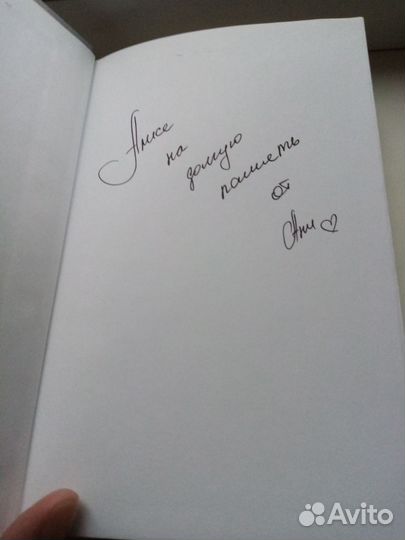 Алисе
на
долгую
память
от
Ани
Avito